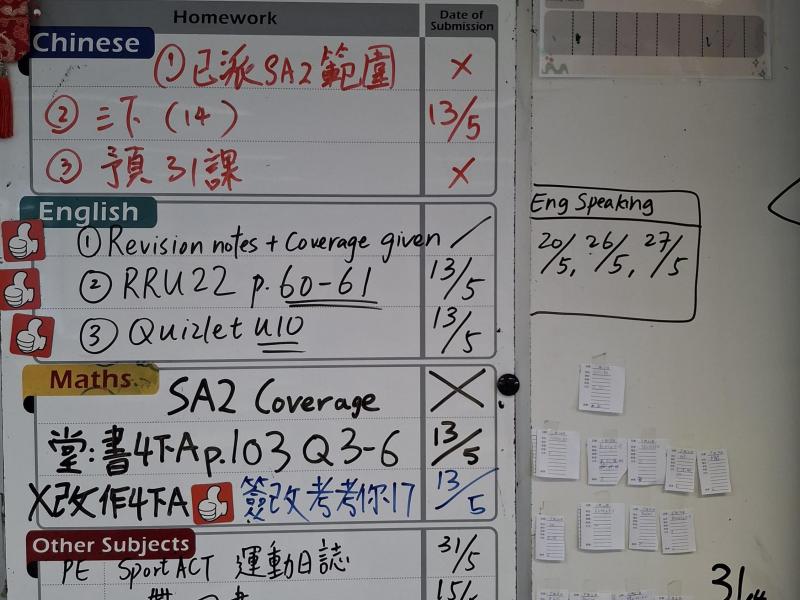 Homework Date of Submission
Chinese
① 已派SA2範圍 ×
② 三下 (14) 13/5
③ 預 31課 ×
English
① Revision notes + Coverage given /
② RRU22 p. 60-61 13/5
③ Quizlet U10 13/5
Maths
SA2 Coverage ×
堂:書4下A p.103 Q3-6 13/5
X改作4下A 簽改考考你17 13/5
Other Subjects
PE Sport ACT 運動日誌 31/5
Eng Speaking
20/5, 26/5, 27/5